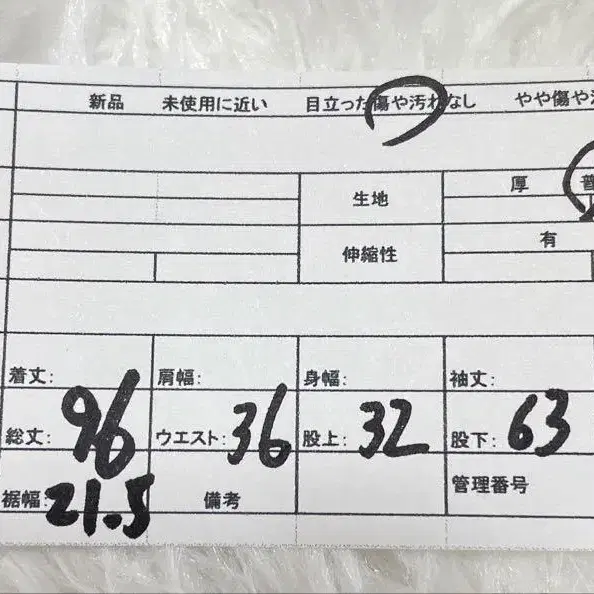 新品 未使用に近い 目立った傷や汚れなし やや傷や
生地 厚
伸縮性 有
着丈: 肩幅: 身幅: 袖丈:
総丈: 96 ウエスト: 36 股上: 32 股下: 63
裾幅: 21.5 備考 管理番号